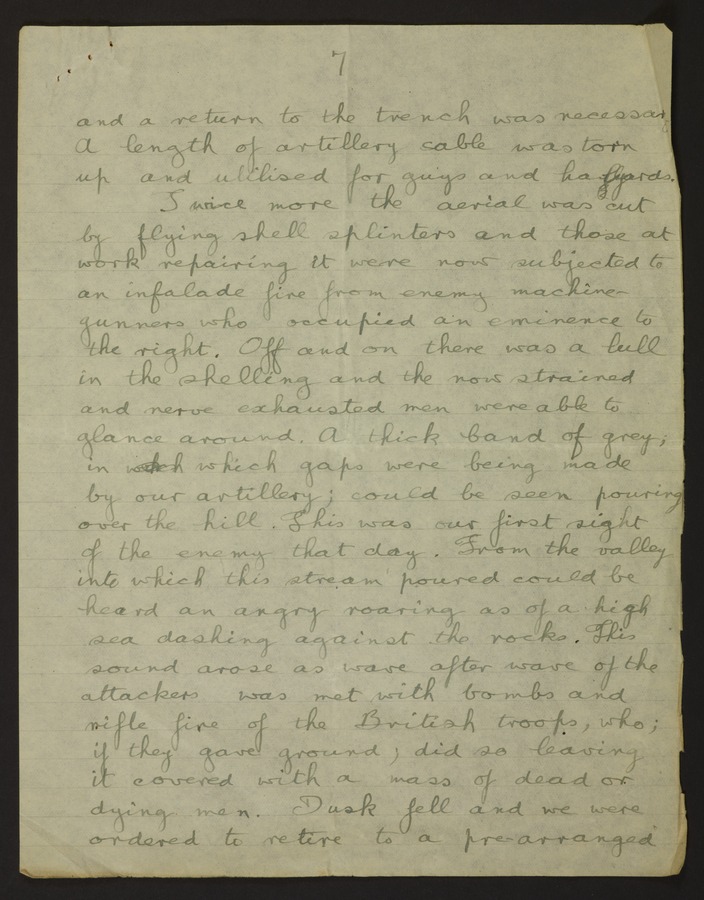 7
and a return to the trench was necessary
A length of artillery cable was torn
up and utilised for guys and halyards.
Twice more the aerial was cut
by flying shell splinters and those at
work repairing it were now subjected to
an infalade fire from enemy machine-
gunners who occupied an eminence to
the right. Off and on there was a lull
in the shelling and the now strained
and nerve exhausted men were able to
glance around. A thick band of grey;
in which gaps were being made
by our artillery; could be seen pouring
over the hill. This was our first sight
of the enemy that day. From the valley
into which this stream poured could be
heard an angry roaring as of a high
sea dashing against the rocks. This
sound arose as wave after wave of the
attackers was met with bombs and
rifle fire of the British troops, who;
if they gave ground; did so leaving
it covered with a mass of dead or
dying men. Dusk fell and we were
ordered to retire to a pre-arranged